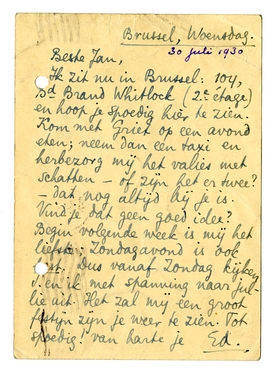 Brussel, Woensdag.
30 juli 1930
Beste Jan,
Ik zit nu in Brussel: 104,
Bd Brand Whitlock (2e étage)
en hoop je spoedig hier te zien.
Kom met Griet op een avond
eten; neem dan een taxi en
herbezorg mij het valies met
schatten – of zijn het er twee?
– dat nog altijd bij je is.
Vind je dat geen goed idee?
Begin volgende week is mij het
liefste. Zondagavond is ook
Dus vanaf Zondag kijken
en ik met spanning naar jul-
lie uit. Het zal mij een groot
festijn zijn je weer te zien. Tot
spoedig! van harte je Ed.